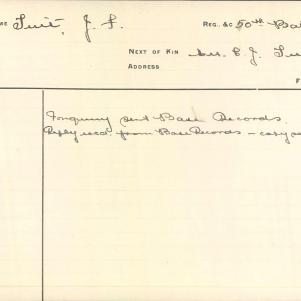 ME Tuit, J. F. REG. &C 50th Bat
NEXT OF KIN Mrs. E. J. Tu
ADDRESS
F
Enquiry sent Base Records.
Reply recd. from Base Records – copy